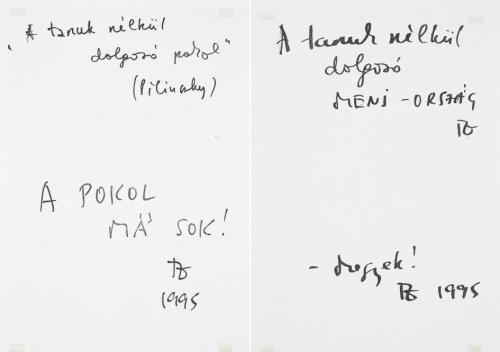 "A tanuk nélkül
dolgozó pokol"
(Pilinszky)
A POKOL
MÁS SOK!
PZ
1995
A tanuk nélkül
dolgozó
MENJ - ORSZÁG
PZ
- megyek!
PZ 1995